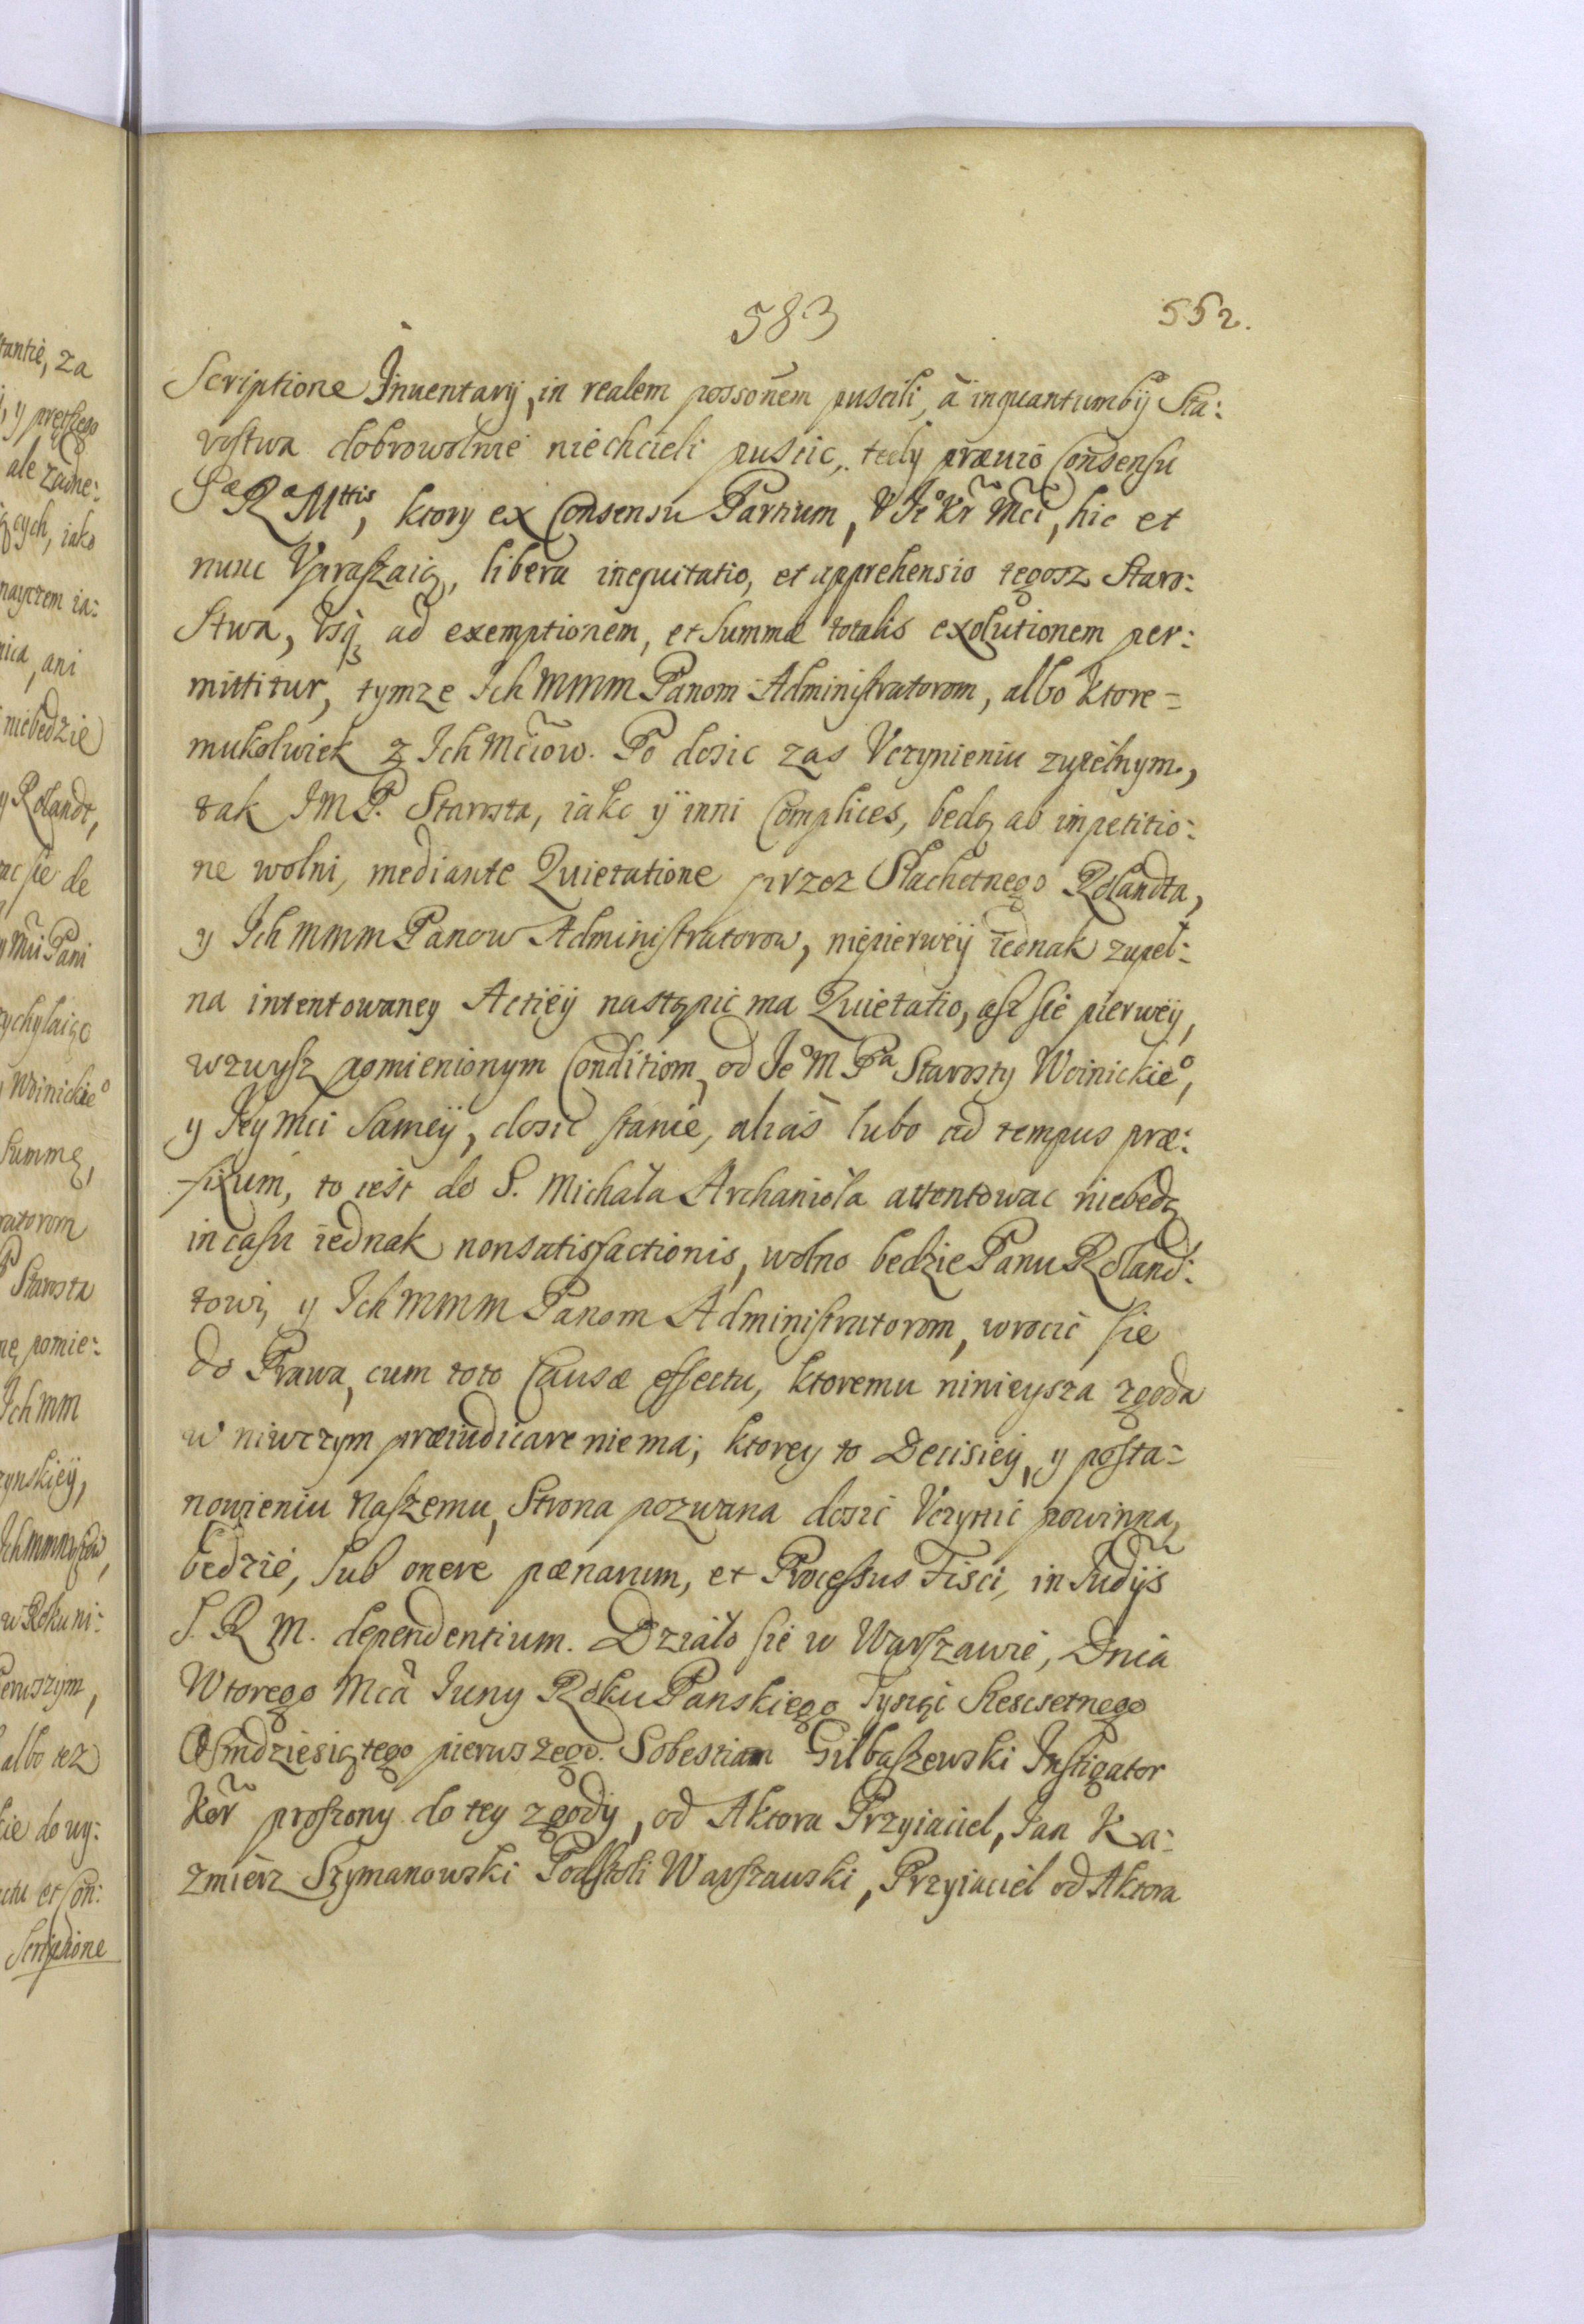 583
552.
Scriptione Inuentarij, in realem possonem puscili, à inquantumbÿ Sta:
rostwa dobrowolnie niechcieli puscic, tedy præuio Consensu
Sæ Ræ Mttis, ktory ex Consensu Partium, V Jeº Kr Mci, hic et
nunc Vpraszaią, libera inequitatio, et apprehensio tegosz Staro:
Stwa, Vsq3 ad exemptionem, et Summæ totalis exolutionem per:
mittitur, tymze Ich mmm Panom Administratorom, albo ktore=
mukolwiek z Ich Mciow. Po dosic zas Vczynieniu zupelnym,
tak IM P. Starosta, iako ÿ inni Complices, bedą ab inpetitio:
ne wolni, mediante Quietatione przez Slachetnego Rolandta,
y Ich mmm Panow Administratorow, niepierweÿ iednak zupeł:
na intentowaney Actieÿ nastąpic ma Quietatio, asz sie pierweÿ,
wzwysz pomienionym Conditiom, od Jeº M Pª Starosty Woinickieº,
y Jey Mci Sameÿ, dosic stanie, aliàs lubo ad tempus præ:
fixum, to iest do S. Michała Archanioła attentowac niebedą
in casu iednak nonsatisfactionis, wolno bedzie Panu Roland:
towi, y Ich mmm Panom Administratorom, wrocic sie
do Prawa, cum toto Causæ effectu, ktoremu ninieysza zgoda
w niwczym præiudicare niema; ktorey to Decisieÿ, y posta=
nowieniu naszemu, Strona pozwana dosic Vczynic powinna,
bedzie, sub onere pænarum, et Processus Fisci, in Judÿs
S. R M. dependentium. Działo sie w Warszawie, Dnia
Wtorego Mcà Juny Roku Panskiego Tysiąc Szescsetnego
Osmdziesiątego pierwszego. Sobestian Gilbaszewski Instigator
Kor proszony do tey zgody, od Aktora Przyiaciel, Jan Ka:
zmierz Szymanowski Podstoli Warszawski, Przyiaciel od Aktora